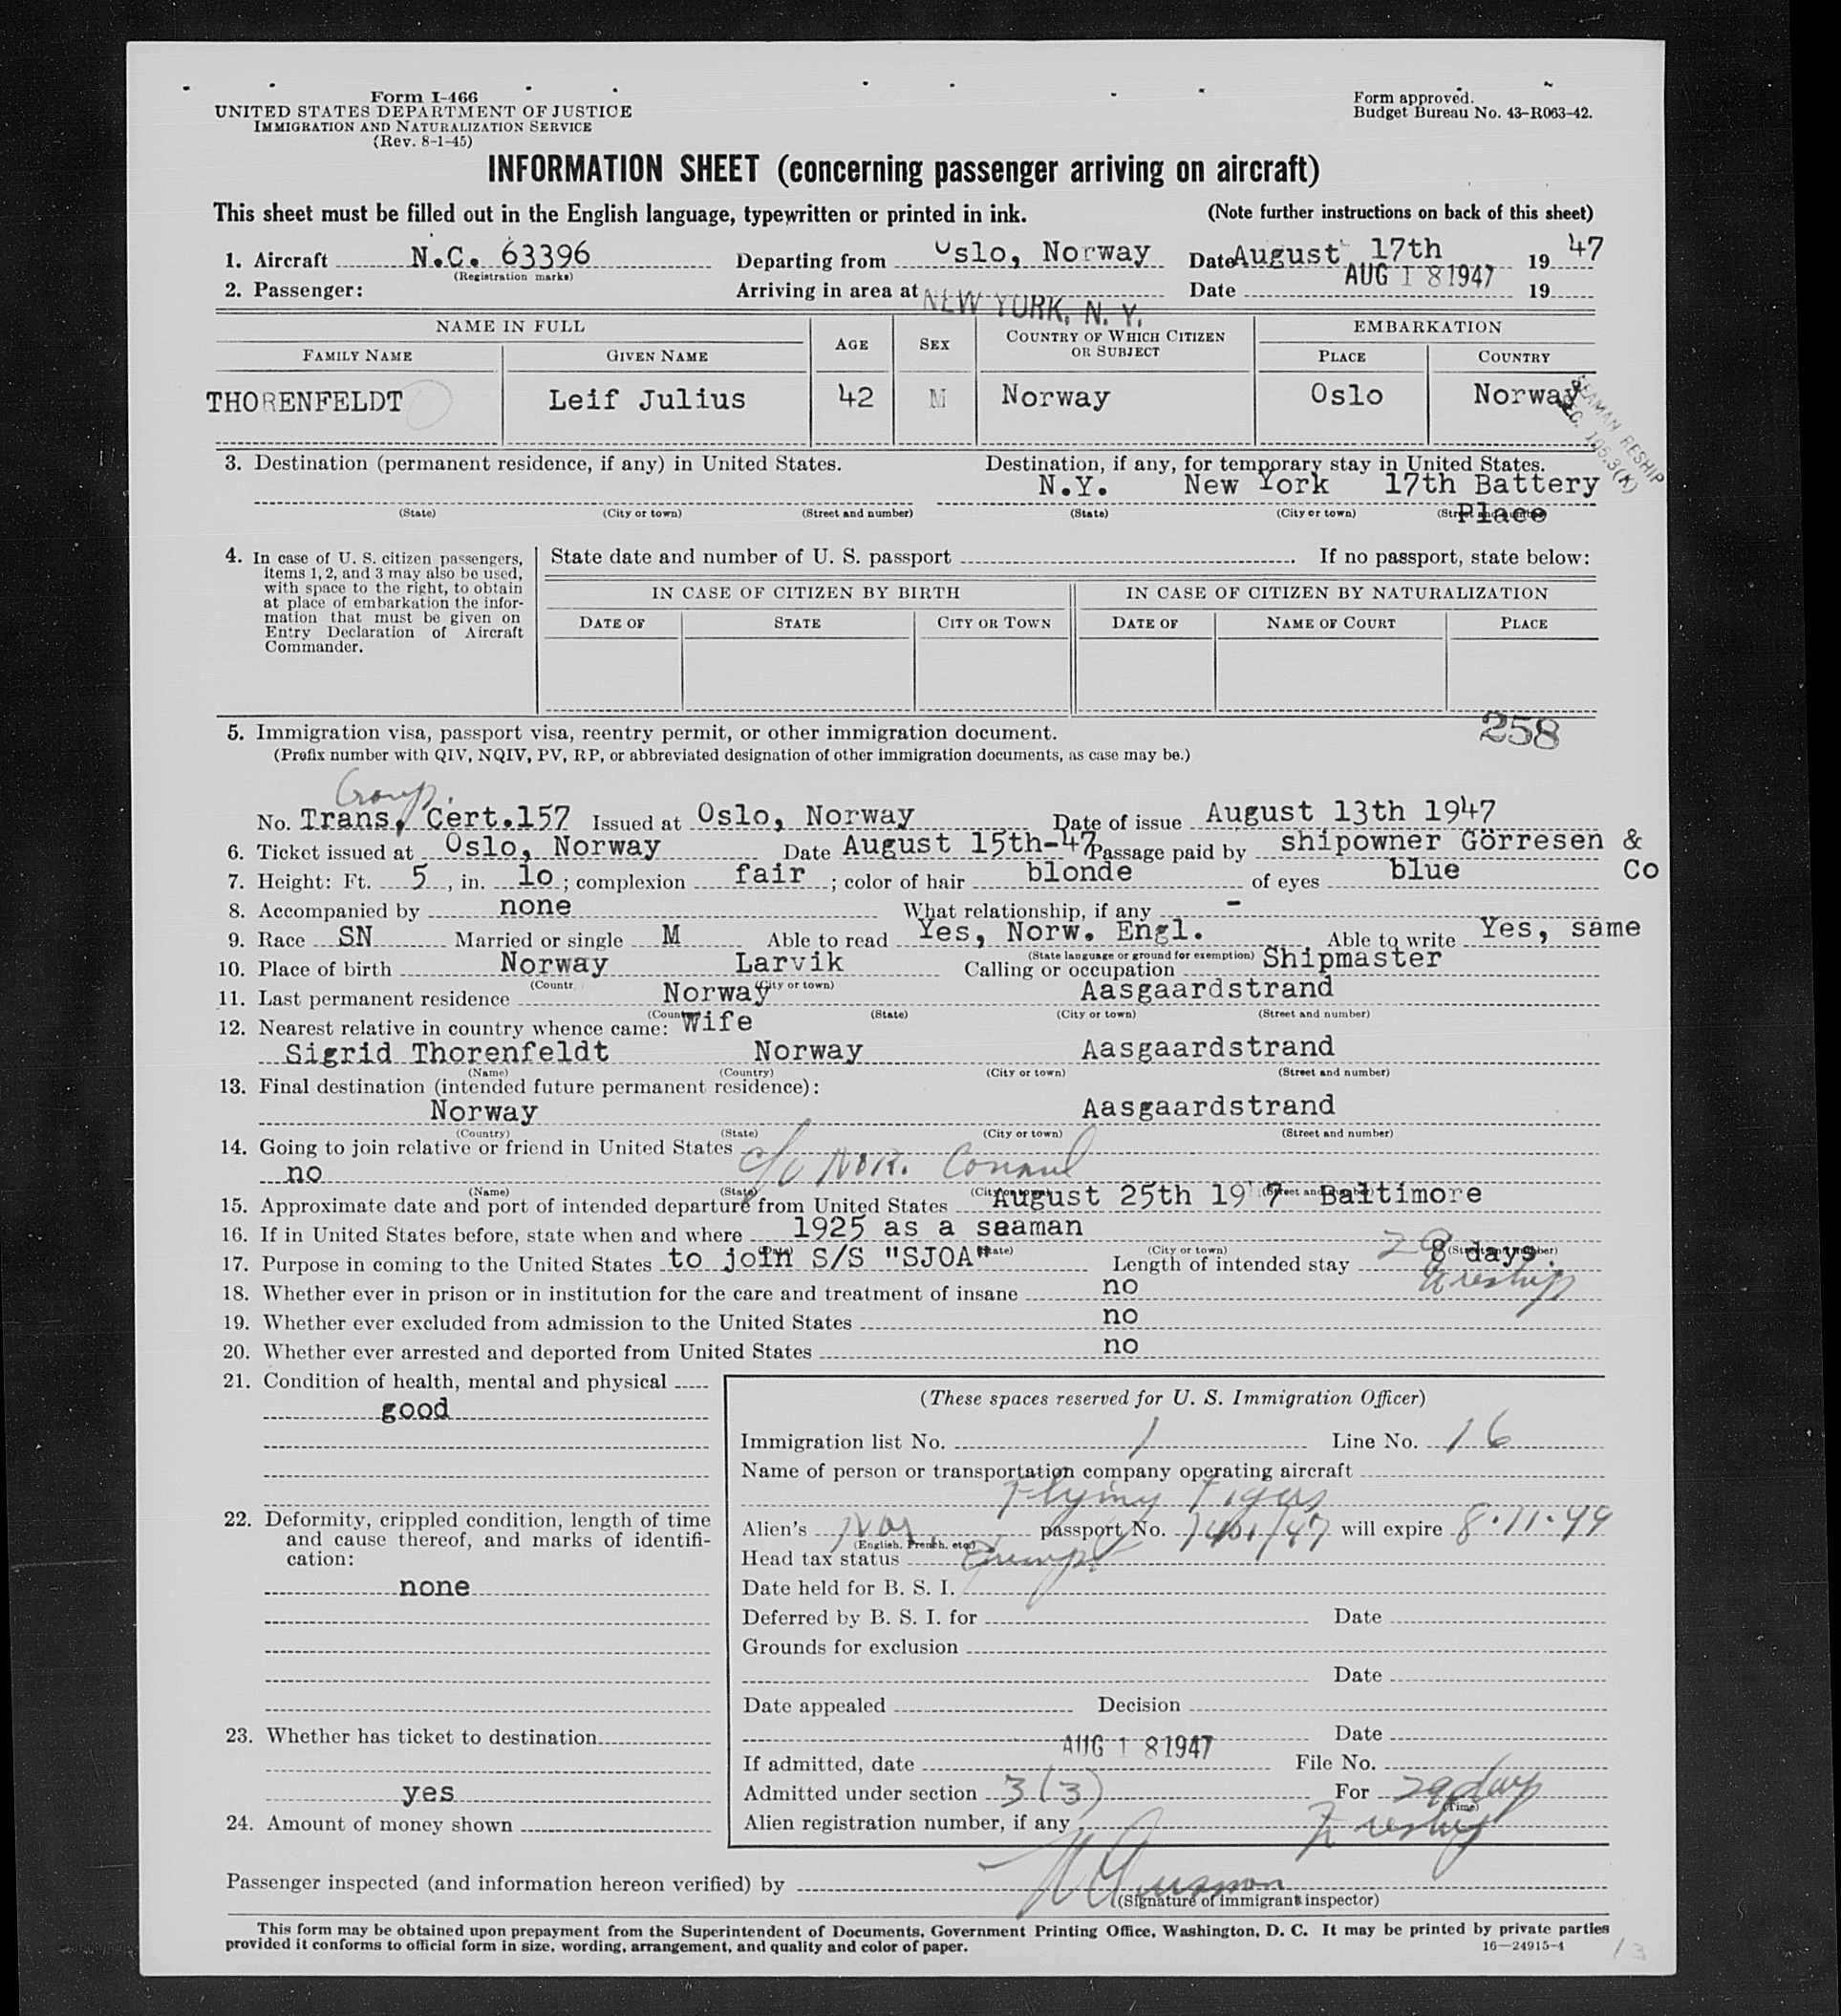 Form I-466
UNITED STATES DEPARTMENT OF JUSTICE
IMMIGRATION AND NATURALIZATION SERVICE
(Rev. 8-1-45)
Form approved.
Budget Bureau No. 43-R063-42.
INFORMATION SHEET (concerning passenger arriving on aircraft)
This sheet must be filled out in the English language, typewritten or printed in ink. (Note further instructions on back of this sheet)
1. Aircraft N.C. 63396 Departing from Oslo, Norway Date August 17th 1947
(Registration marks)
2. Passenger: Arriving in area at NEW YORK, N. Y. Date AUG 18 1947 19
NAME IN FULL AGE SEX COUNTRY OF WHICH CITIZEN OR SUBJECT EMBARKATION
FAMILY NAME GIVEN NAME PLACE COUNTRY
THORENFELDT Leif Julius 42 M Norway Oslo Norway
SEAMAN RESHIP
SEC. 105.3(K)
3. Destination (permanent residence, if any) in United States. Destination, if any, for temporary stay in United States.
N.Y. New York 17th Battery
Place
(State) (City or town) (Street and number) (State) (City or town) (Street and number)
4. In case of U. S. citizen passengers, items 1, 2, and 3 may also be used, with space to the right, to obtain at place of embarkation the information that must be given on Entry Declaration of Aircraft Commander.
State date and number of U. S. passport If no passport, state below:
IN CASE OF CITIZEN BY BIRTH IN CASE OF CITIZEN BY NATURALIZATION
DATE OF STATE CITY OR TOWN DATE OF NAME OF COURT PLACE
258
5. Immigration visa, passport visa, reentry permit, or other immigration document.
(Prefix number with QIV, NQIV, PV, RP, or abbreviated designation of other immigration documents, as case may be.)
No. Trans, Cert.157 Issued at Oslo, Norway Date of issue August 13th 1947
6. Ticket issued at Oslo, Norway Date August 15th-47 Passage paid by shipowner Görresen &
Co
7. Height: Ft. 5, in. 1o; complexion fair; color of hair blonde of eyes blue
8. Accompanied by none What relationship, if any -
9. Race SN Married or single M Able to read Yes, Norw. Engl. Able to write Yes, same
(State language or ground for exemption)
10. Place of birth Norway Larvik Calling or occupation Shipmaster
(City or town)
11. Last permanent residence Norway Aasgaardstrand
(State) (City or town) (Street and number)
12. Nearest relative in country whence came: Wife
Sigrid Thorenfeldt Norway Aasgaardstrand
(Name) (Country) (City or town) (Street and number)
13. Final destination (intended future permanent residence):
Norway Aasgaardstrand
(Country) (State) (City or town) (Street and number)
14. Going to join relative or friend in United States c/o NOR. Consul
no
(Name) (State) (City or town) (Street and number)
15. Approximate date and port of intended departure from United States August 25th 19 7 Baltimore
16. If in United States before, state when and where 1925 as a seaman
(State) (City or town) (Street and number)
17. Purpose in coming to the United States to join S/S "SJOA" Length of intended stay 29 8 days.
reship
18. Whether ever in prison or in institution for the care and treatment of insane no
19. Whether ever excluded from admission to the United States no
20. Whether ever arrested and deported from United States no
21. Condition of health, mental and physical
good
22. Deformity, crippled condition, length of time and cause thereof, and marks of identification:
none
23. Whether has ticket to destination
yes
24. Amount of money shown
(These spaces reserved for U. S. Immigration Officer)
Immigration list No. 1 Line No. 16
Name of person or transportation company operating aircraft
Flying Tigers
Alien's Nor. passport No. will expire 8.11.49
(English, French, etc.)
Head tax status Exempt
Date held for B. S. I.
Deferred by B. S. I. for Date
Grounds for exclusion
Date
Date appealed Decision
Date
If admitted, date AUG 18 1947 File No.
Admitted under section 3(3) For 29 days
(Time)
Alien registration number, if any reship
Passenger inspected (and information hereon verified) by
(Signature of immigrant inspector)
This form may be obtained upon prepayment from the Superintendent of Documents, Government Printing Office, Washington, D. C. It may be printed by private parties
provided it conforms to official form in size, wording, arrangement, and quality and color of paper. 16—24915-4
13